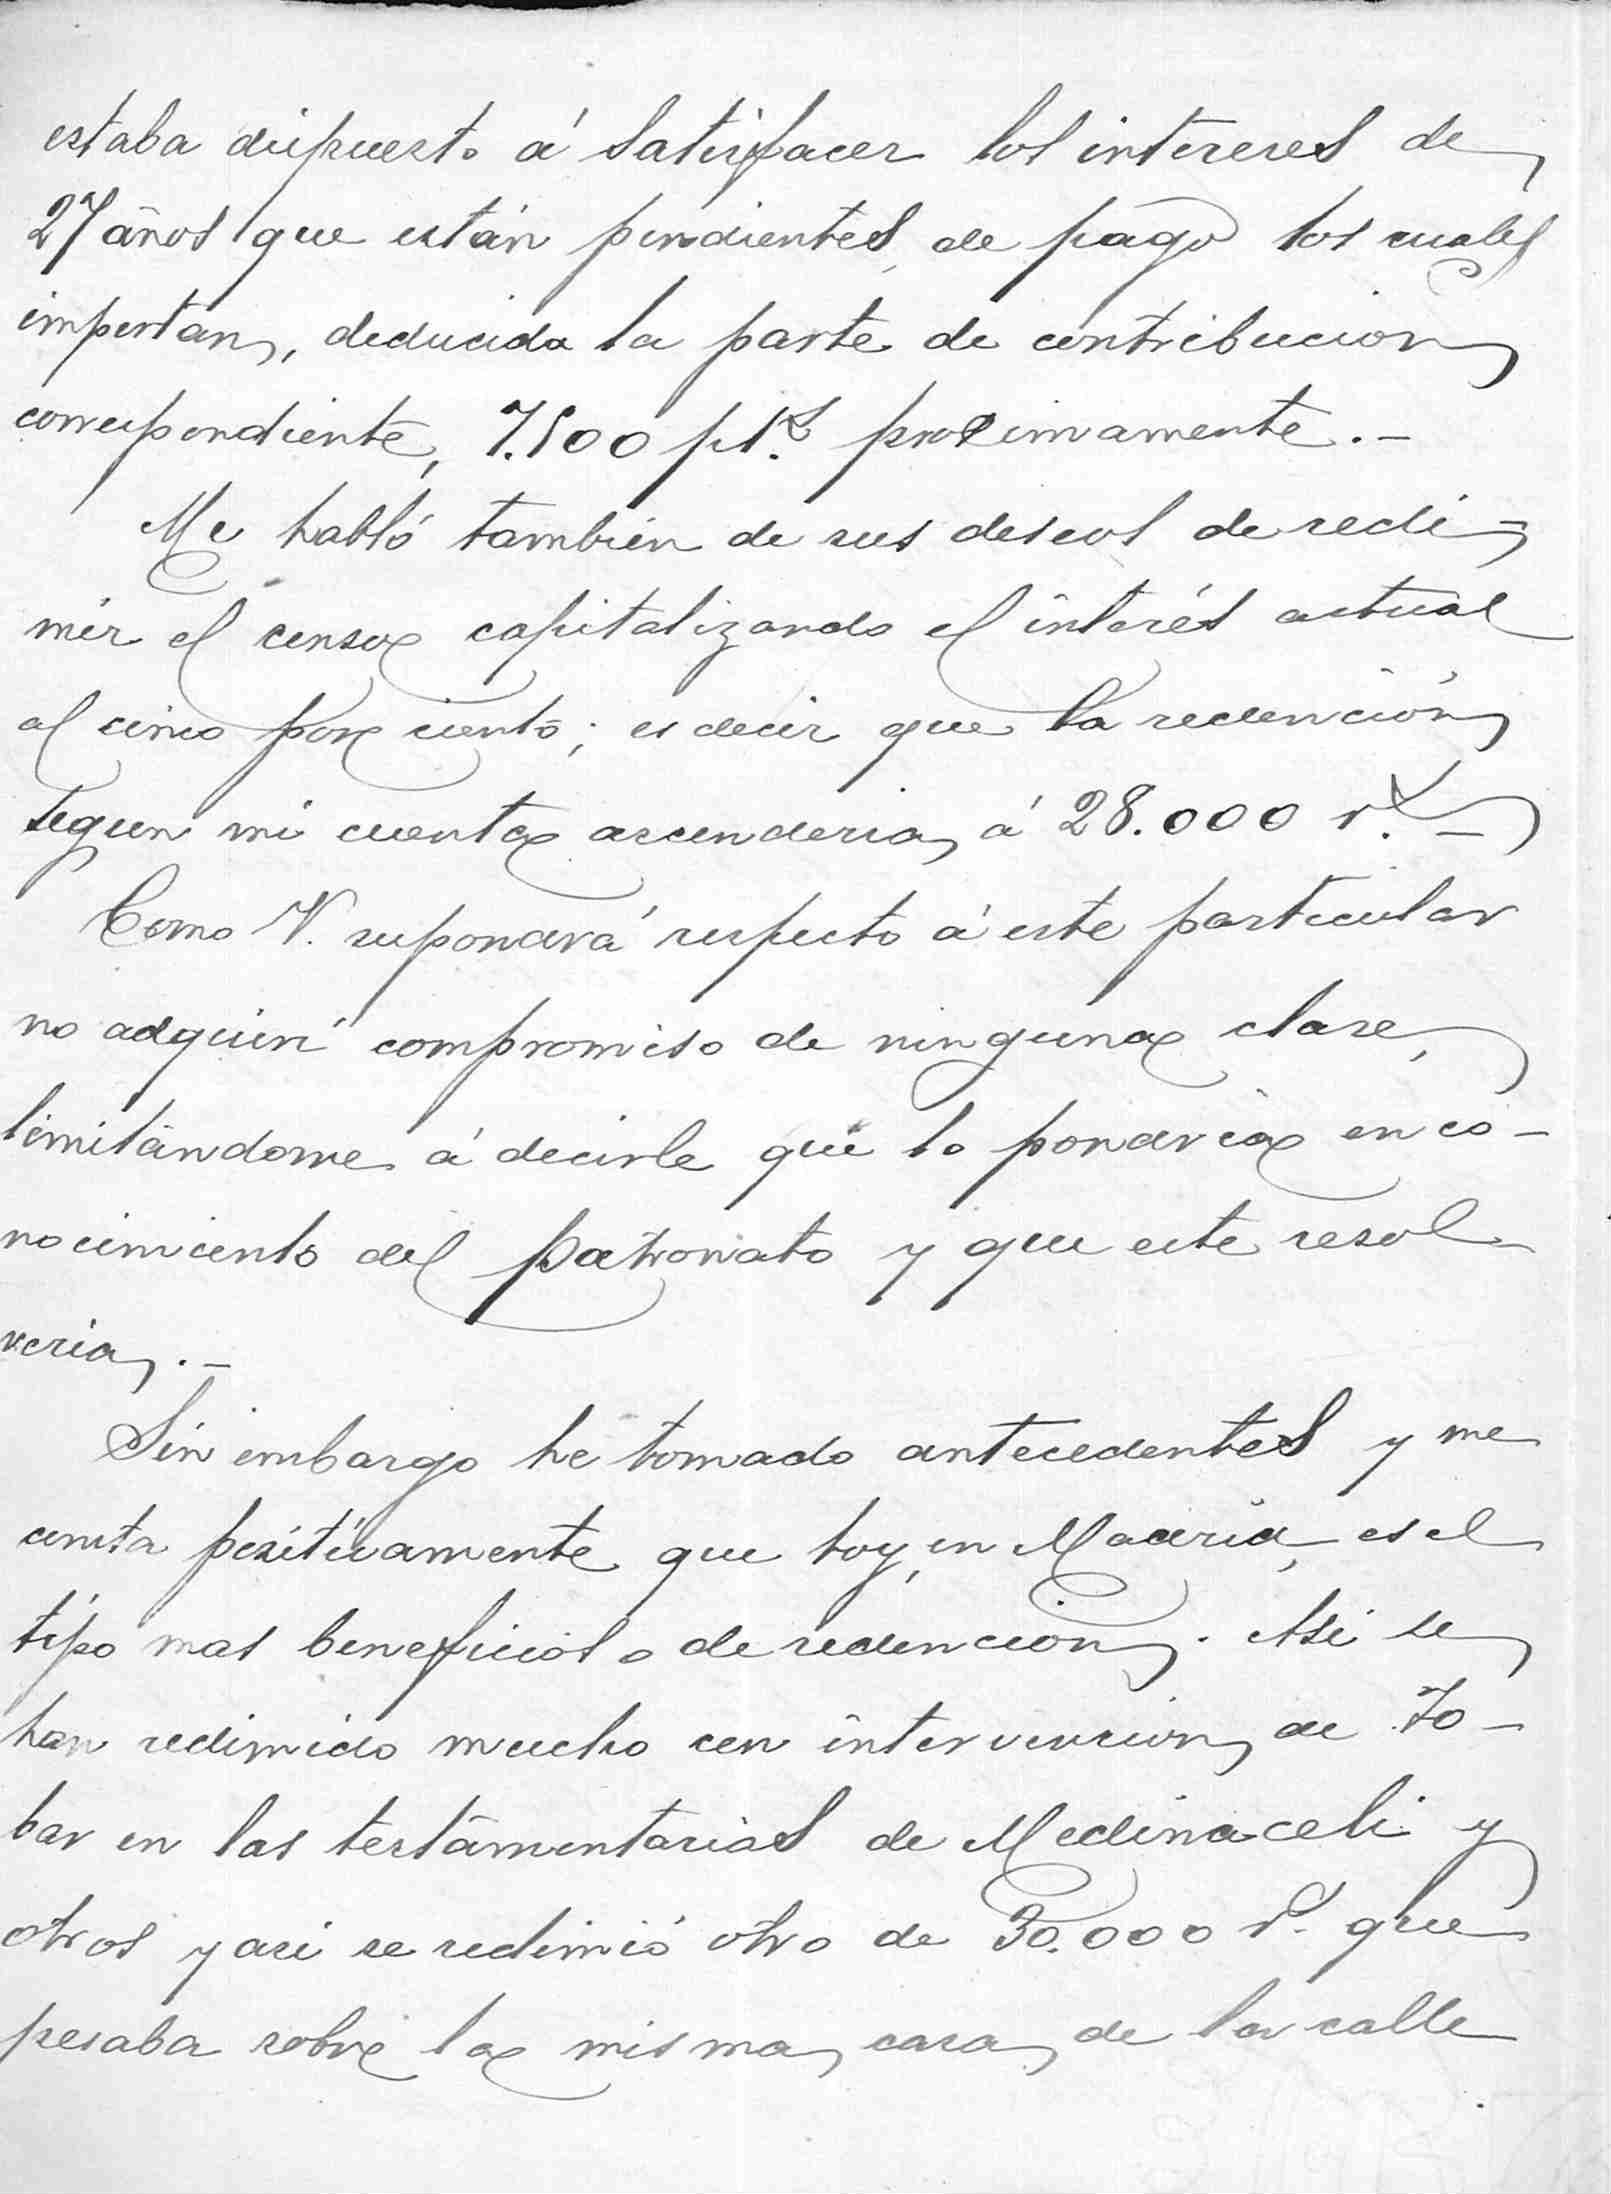 estaba dispuesto á satisfacer los intereses de
27 años que están pendientes de pago los cuales
importan, deducida la parte de contribucion
correspondiente, 7.500 pts. proximamente.-
Me habló tambien de sus deseos de redi-
mir el censo capitalizando el interés actual
al cinco por ciento; es decir que la redención
segun mi cuenta ascenderia á 28.000 rs.-
Como V. supondrá respecto á este particular
no adquirí compromiso de ninguna clase,
limitándome á decirle que lo pondria en co-
nocimiento del Patronato y que este resol-
veria.-
Sin embargo he tomado antecedentes y me
consta positivamente que hoy, en Madrid, es el
tipo mas beneficioso de redencion. Asi se
han redimido mucho con intervencion de To-
bar en las testamentarias de Medinaceli y
otros y asi se redimió otro de 30.000 rs. que
pesaba sobre la misma casa de la calle